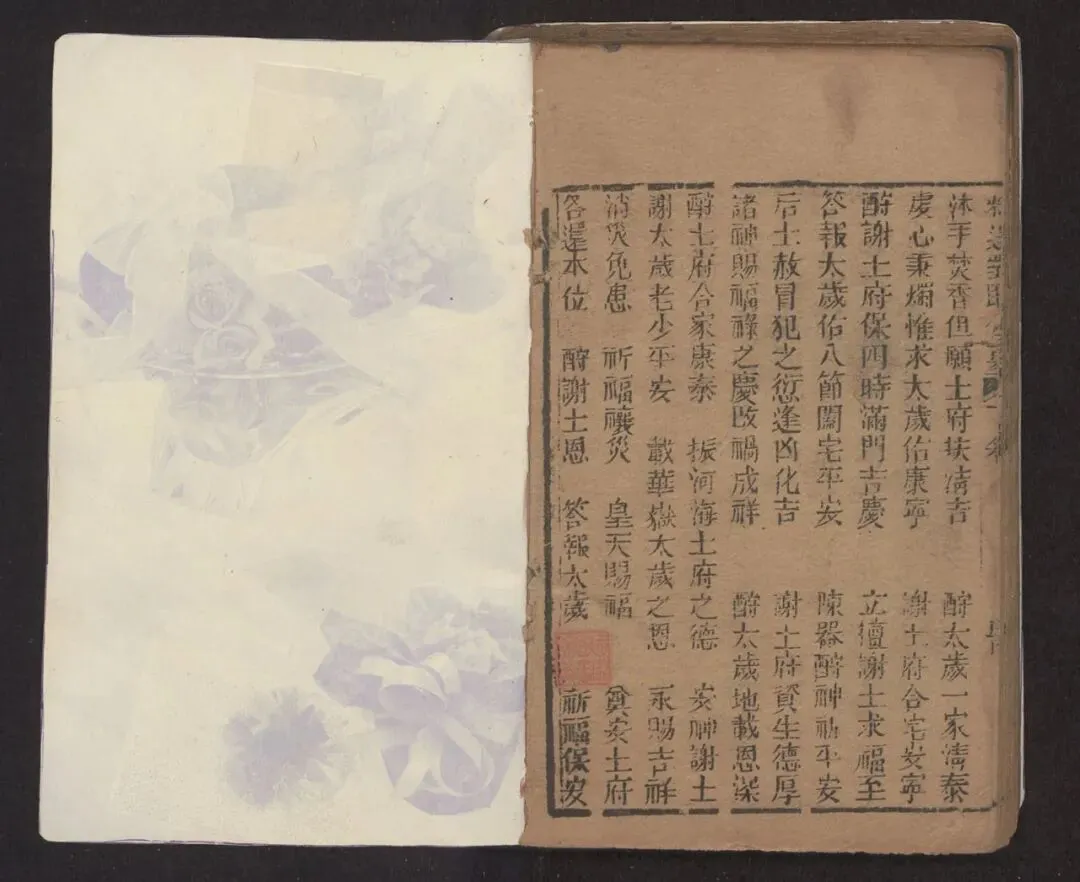 沐手焚香但願土府扶清吉 酧太歲一家清泰
虔心秉燭惟求太歲佑康寧 謝土府合宅安寧
酧謝土府保四時滿門吉慶 立壇謝土求福至
答報太歲佑八節闔宅平安 陳器酧神福平安
后土赦冒犯之愆逢凶化吉 謝土府資生德厚
諸神賜福祿之慶改禍成祥 酧太歲地載恩深
酧土府合家康泰 振河海土府之德 安神謝土
謝太歲老少平安 載華嶽太歲之恩 永賜吉祥
消災免患 祈福禳災 皇天賜福 奠安土府
答還本位 酧謝土恩 答報太歲 祈福保安